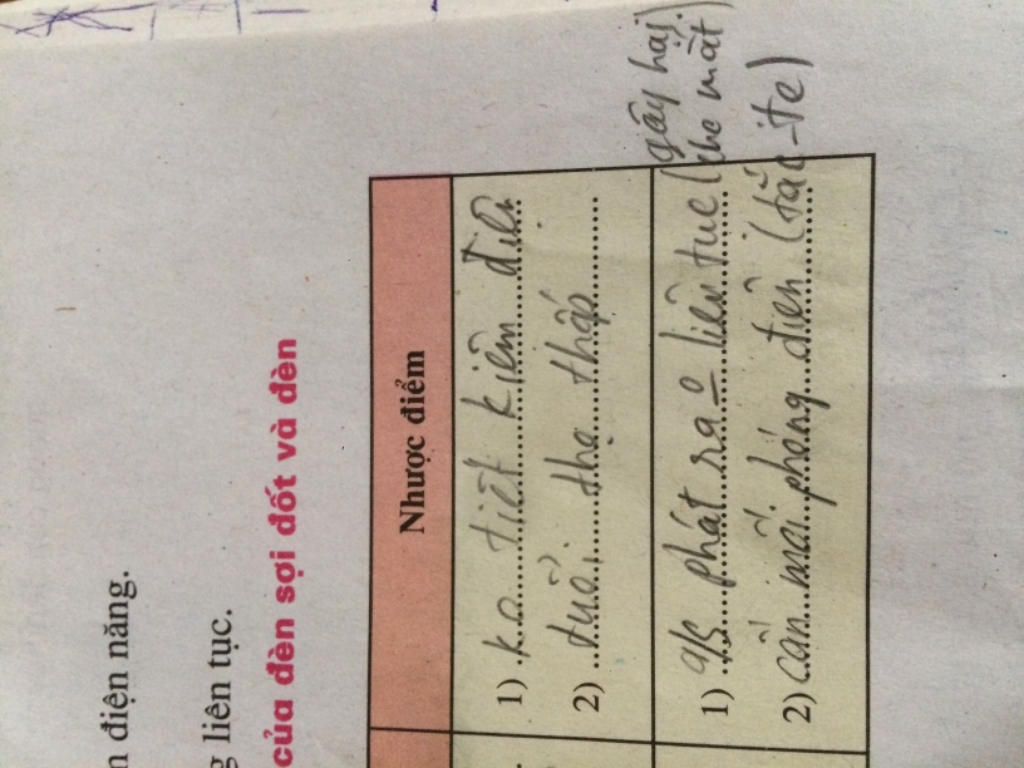 n điện năng.
g liên tục.
của đèn sợi đốt và đèn
Nhược điểm
1) ko tiết kiệm điện
2) tuổi thọ thấp
1) a/s phát ra ko liên tục (gây hại cho mắt)
2) cần mồi phóng điện (tắc-te)